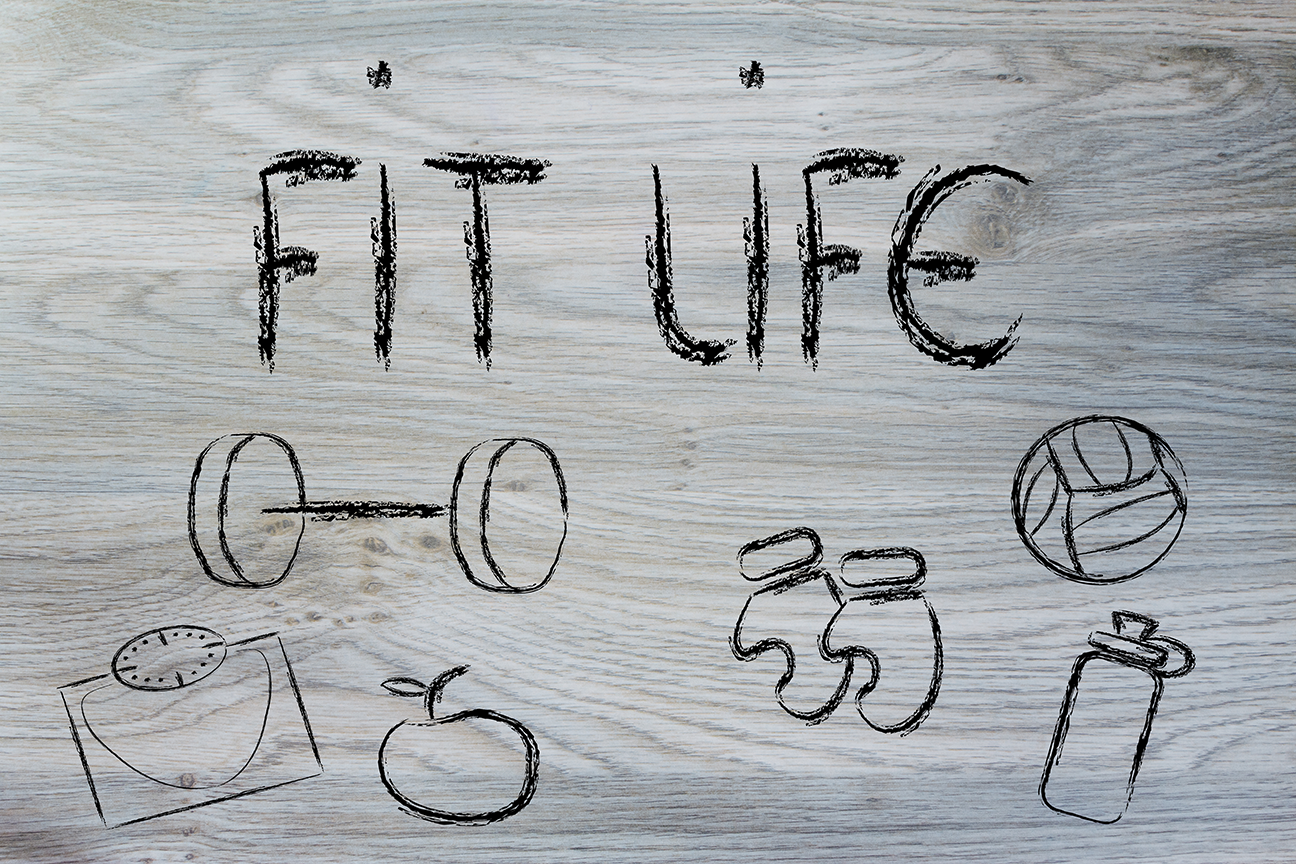 FIT LIFE